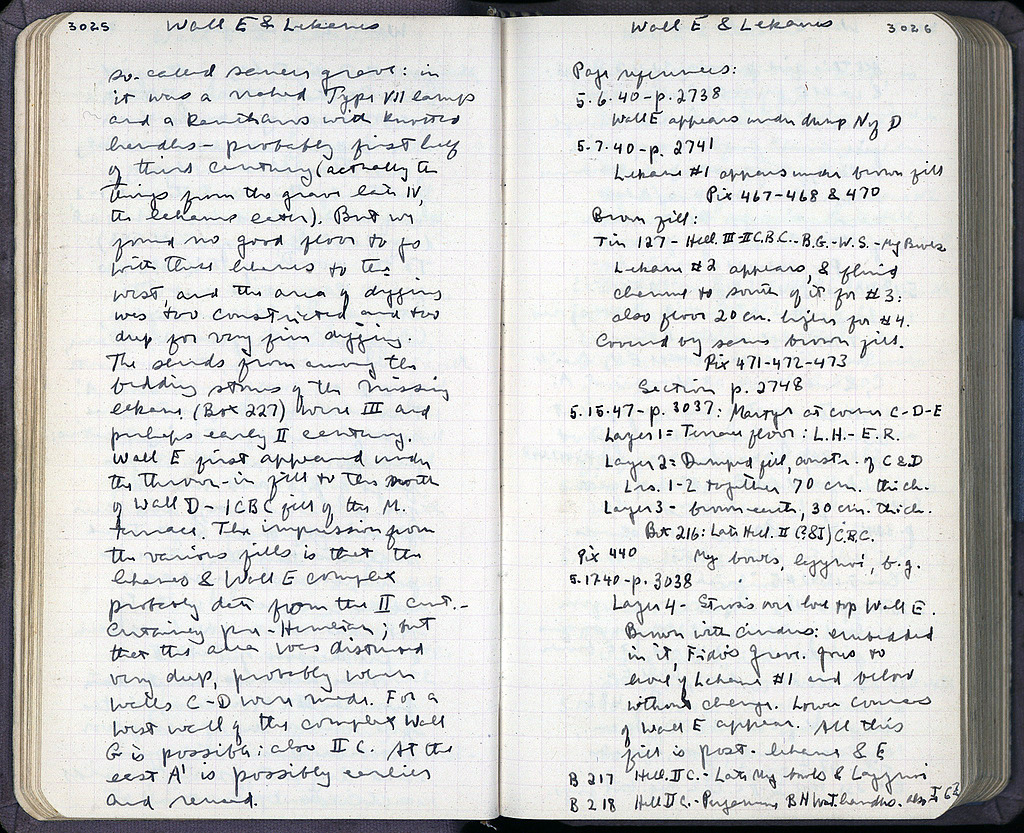 3025
Wall E & Lekanes
so-called sewers grave: in
it was a naked Type VII lamp
and a kantharos with knotted
handles - probably first half
of third century (actually the
things from the grave late IV,
the lekanes later). But we
found no good floor to go
with these lekanes to the
west, and the area of digging
was too constricted and too
deep for very fine digging.
The sherds from among the
bedding stones of the missing
lekane (Box 227) were III and
perhaps early II century.
Wall E first appeared under
the thrown-in fill to the north
of Wall D - I C BC fill of the M.
terrace. The impression from
the various fills is that the
lekanes & Wall E complex
probably date from the II cent. -
certainly pre-Herulian; but
that the area was disturbed
very deep, probably when
walls C-D were made. For a
west wall of the complex Wall
G is possible: also II C. At the
east A' is possibly earlier
and reused.
3026
Wall E & Lekanes
Page references:
5.6.40 - p. 2738
Wall E appears under dump N of D
5.7.40 - p. 2741
Lekane #1 appears under brown fill
Pix 467-468 & 470
Brown fill:
Tin 127 - Hell. III-II C.B.C. - B.G. - W.S. - Meg Bowls
Lekane #2 appears, & fluid
channel to south of it for #3:
also floor 20 cm. higher for #4.
Covered by same brown fill.
Pix 471-472-473
Section p. 2748
5.15.47 - p. 3037: Martyr at corner C-D-E
Layer 1 = Terrace floor: L.H. - E.R.
Layer 2 = Dumped fill, constr. of C & D
Lrs. 1-2 together 70 cm. thick.
Layer 3 - brown earth, 30 cm. thick.
Box 216: Late Hell. II (& I) C.B.C.
Pix 440 Meg bowls, lagynoi, b.g.
5.17.40 - p. 3038
Layer 4 - Strosis over lost top Wall E.
Brown with cinders: embedded
in it, Fido's Grave. Goes to
level of Lekane #1 and below
without change. Lower courses
of Wall E appear. All this
fill is post-lekane & E
B 217 Hell. II C. - Late Meg bowls & Lagynoi
B 218 Hell II C. - Pergamene, BH